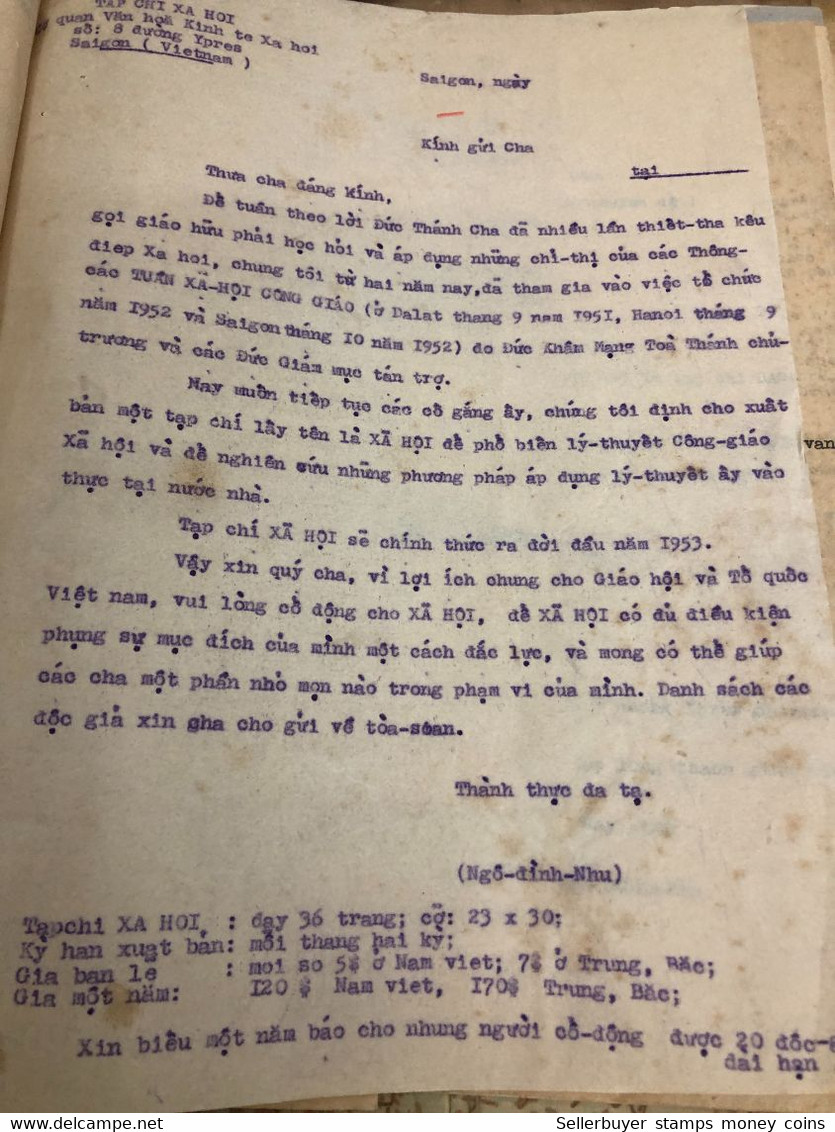 TAP CHI XA HOI
quan Văn hoá Kinh te Xa hoi
số: 8 đường Ypres
Saigon ( Vietnam )
Saigon, ngày
Kính gửi Cha
tại
Thưa cha đáng kính,
Để tuân theo lời Đức Thánh Cha đã nhiều lần thiết-tha kêu
gọi giáo hữu phải học hỏi và áp dụng những chỉ-thị của các Thông-
điep Xa hoi, chung tôi từ hai năm nay,đã tham gia vào việc tổ chức
các TUẦN XÃ-HỘI CÔNG GIÁO (ở Dalat thang 9 nam I95I, Hanoi tháng 9
năm I952 và Saigon tháng IO năm I952) do Đức Khâm Mạng Toà Thánh chủ-
trương và các Đức Giám mục tán trợ.
Nay muốn tiếp tục các cố gắng ấy, chúng tôi định cho xuất
bản một tạp chí lấy tên là XÃ HỘI để phổ biến lý-thuyết Công-giáo
Xã hội và để nghiên cứu những phương pháp áp dụng lý-thuyết ấy vào
thực tại nước nhà.
van
Tạp chí XÃ HỘI sẽ chính thức ra đời đầu năm I953.
Vậy xin quý cha, vì lợi ích chung cho Giáo hội và Tổ quốc
Việt nam, vui lòng cổ động cho XÃ HỘI, để XÃ HỘI có đủ điều kiện
phụng sự mục đích của mình một cách đắc lực, và mong có thể giúp
các cha một phần nhỏ mọn nào trong phạm vi của mình. Danh sách các
độc giả xin cha cho gửi về tòa-soan.
Thành thực đa tạ.
(Ngô-đình-Nhu)
Tạpchi XA HOI : dạy 36 trang; cỡ: 23 x 30;
Kỳ han xuạt bản: mỗi thang hai kỳ;
Gia ban lẻ : moi so 5$ ở Nam viet; 7$ ở Trung, Băc;
Gia một năm: I20 $ Nam viet, I70$ Trung, Băc;
Xin biếu một năm báo cho nhung người cổ-động được 20 đốc-
dài hạn
Sellerbuyer stamps money coins